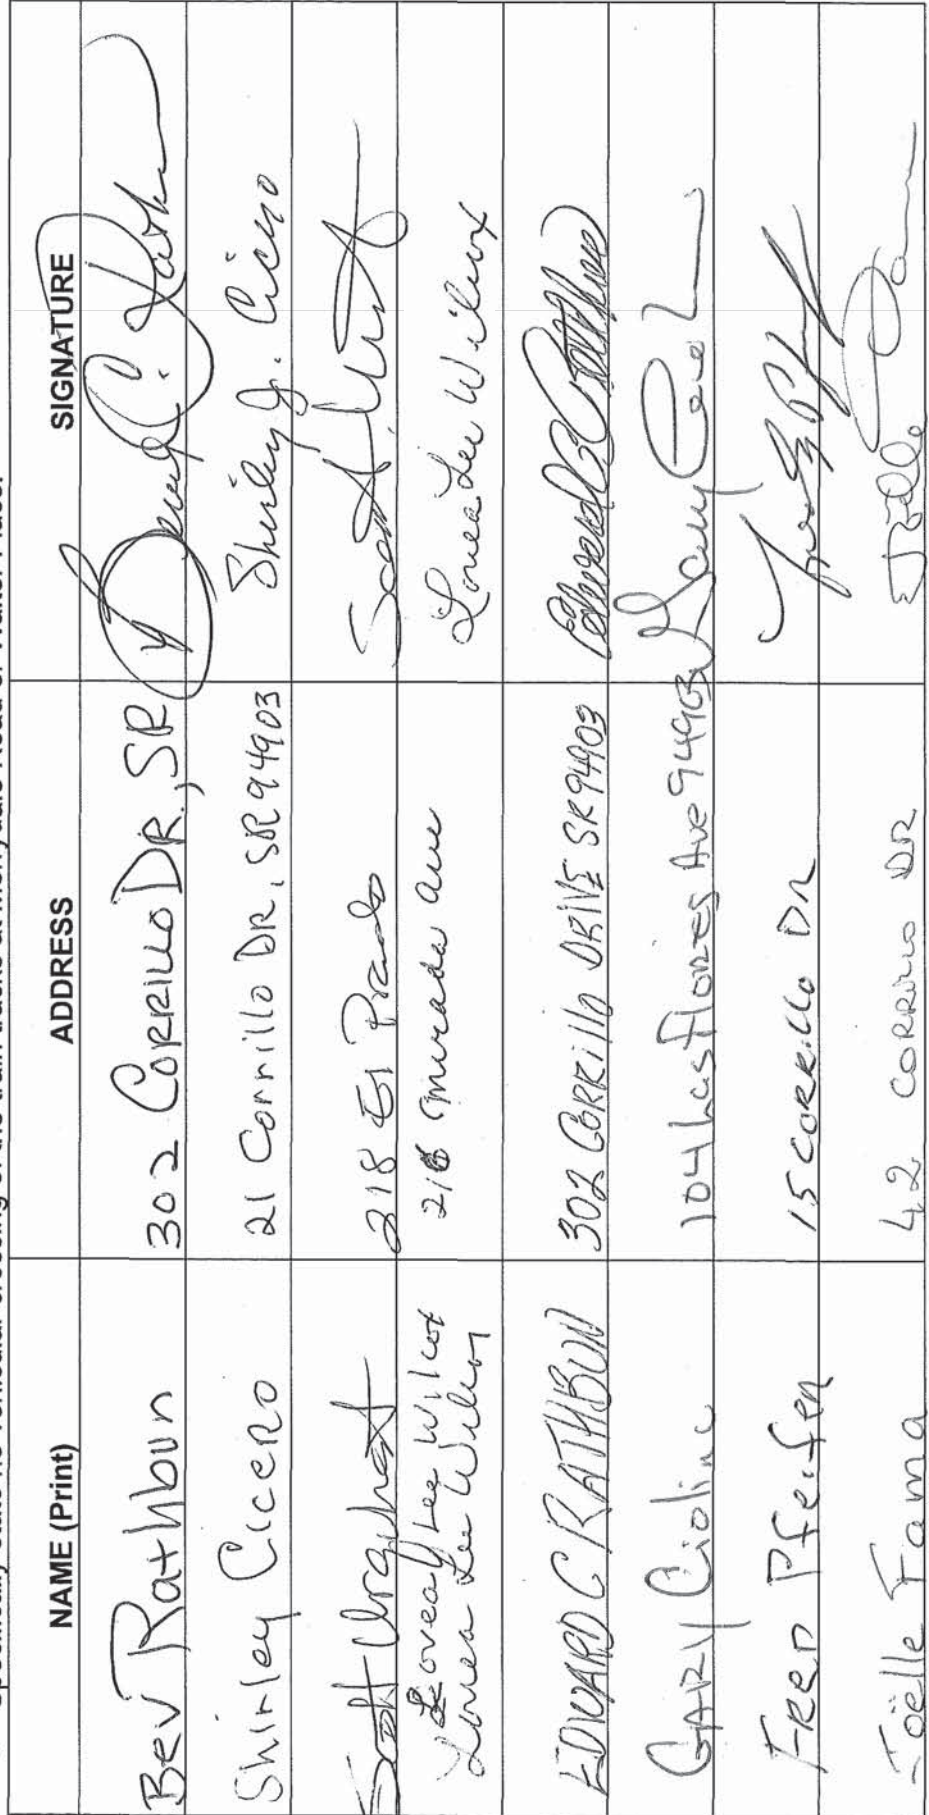 NAME (Print) ADDRESS SIGNATURE
Bev Rathbun 302 CORRILLO DR., SR
Shirley Cicero 21 Corrillo DR. SR 94903 Shirley J. Cicero
Scott Urquhart 218 El Prado Scott
Loveay Lee Wilcox
Lovea Lee Wilcox 216 Mirada Ave Lovea Lee Wilcox
EDWARD C RATHBUN 302 CORRILLO DRIVE SR 94903 Edward C Rathbun
GARY Ciolino 104 Las Flores Ave 94903 Gary
FRED Pfeifer 15 CORRILLO DR
Joëlle Fama 42 CORRILLO DR Joëlle